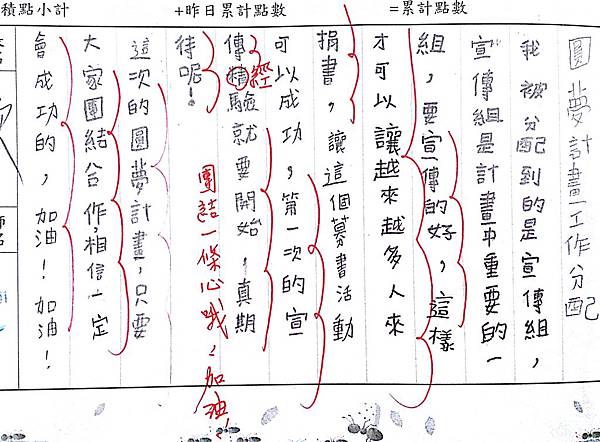 積點小計
+昨日累計點數
=累計點數
圓夢計畫工作分配
我被分配到的是宣傳組，
宣傳組是計畫中重要的一
組，要宣傳的好，這樣
才可以讓越來越多人來
捐書，讓這個募書活動
可以成功，第一次的宣
傳精驗就要開始，真期
經
待呢！
團結一條心哦、加油！
這次的圓夢計畫，只要
大家團結合作，相信一定
會成功的，加油！加油！